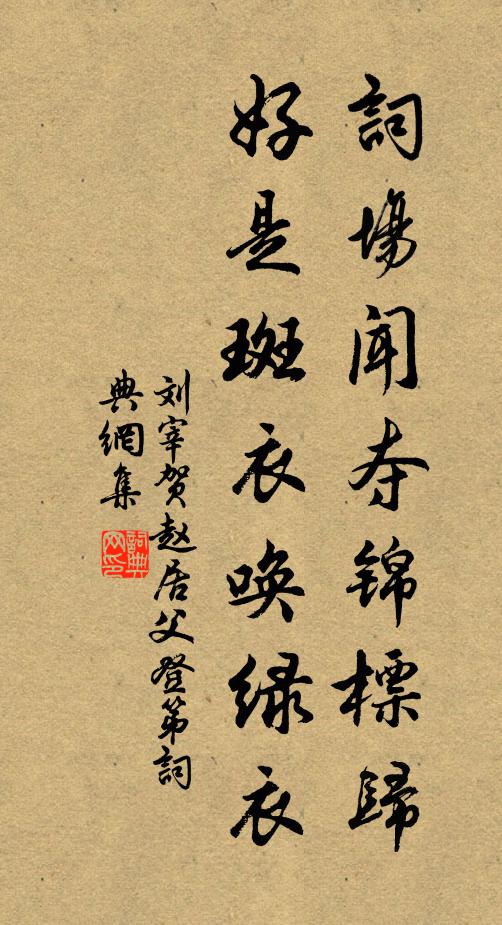 詞場聞夺錦標歸
好是斑衣唤緑衣
刘宰贺赵居父登第詞
典網集
詞典
网印